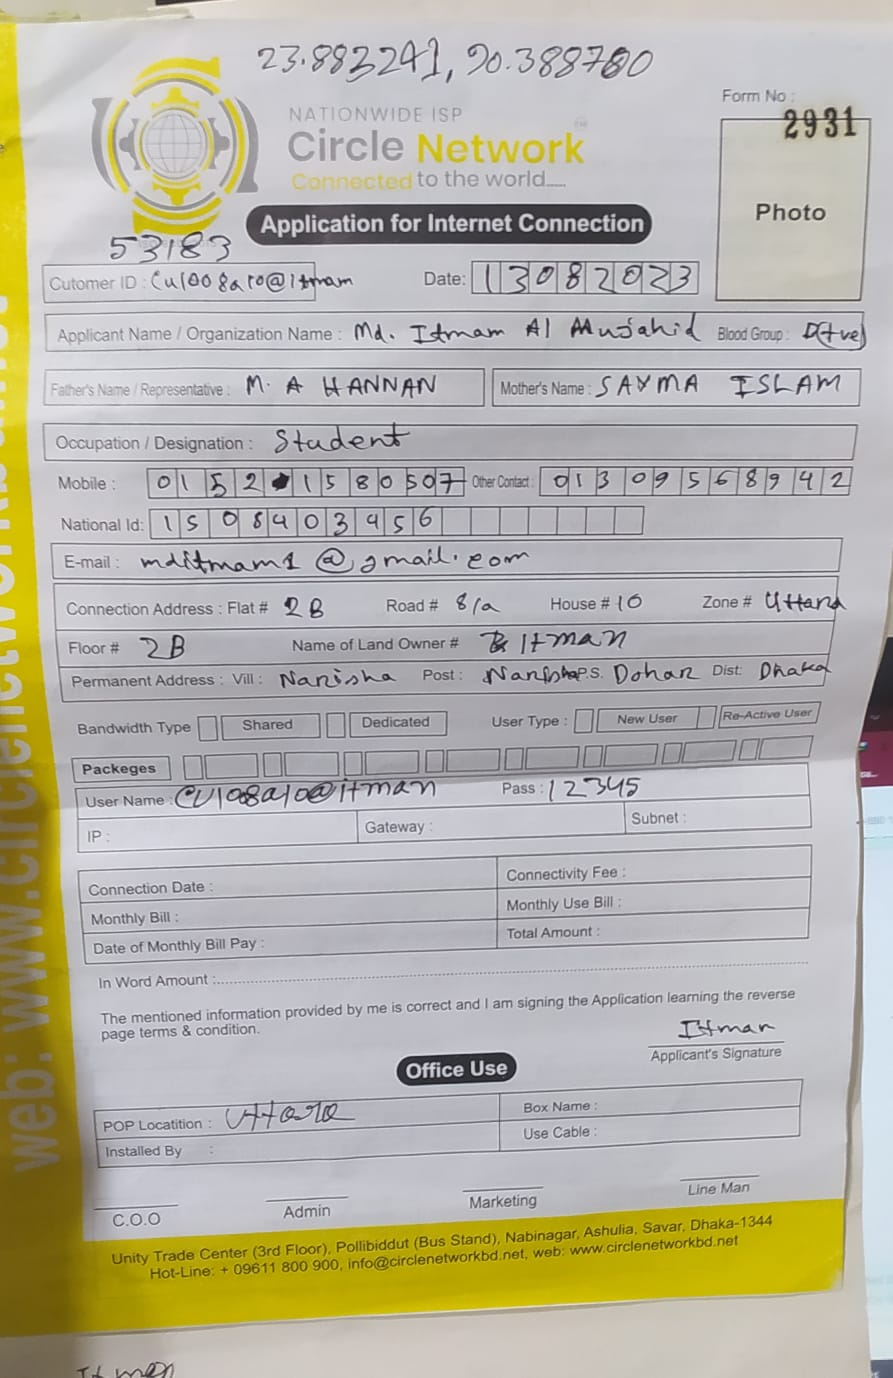 23.883241, 90.388780
Form No :
2931
NATIONWIDE ISP
Circle Network
Connected to the world.....
Photo
Application for Internet Connection
53183
Cutomer ID : Cu1008a10@itmam
Date: 13082023
Applicant Name / Organization Name : Md. Itmam Al Mujahid Blood Group : (+ve)
Father's Name / Representative : M. A HANNAN Mother's Name : SAYMA ISLAM
Occupation / Designation : Student
Mobile : 0152 1580507 Other Contact : 01309568942
National Id: 1508403456
E-mail : mditmam1@gmail.com
Connection Address : Flat # 2B Road # 8/a House # 10 Zone # Uttara
Floor # 2B Name of Land Owner # Itman
Permanent Address : Vill : Narisha Post : Narisha P.S. Dohar Dist: Dhaka
Bandwidth Type Shared Dedicated User Type : New User Re-Active User
Packeges
User Name : CU1008a10@itman Pass : 12345
IP : Gateway : Subnet :
Connection Date : Connectivity Fee :
Monthly Bill : Monthly Use Bill :
Date of Monthly Bill Pay : Total Amount :
In Word Amount :
The mentioned information provided by me is correct and I am signing the Application learning the reverse
page terms & condition.
Itmam
Applicant's Signature
Office Use
POP Locatition : Uttara Box Name :
Installed By : Use Cable :
C.O.O Admin Marketing Line Man
Unity Trade Center (3rd Floor), Pollibiddut (Bus Stand), Nabinagar, Ashulia, Savar, Dhaka-1344
Hot-Line: + 09611 800 900, info@circlenetworkbd.net, web: www.circlenetworkbd.net